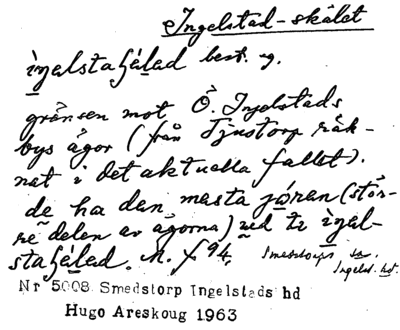 Ingelstad-skälet
best. sg.
gränsen mot Ö. Ingelstads
bys ägor (från Tjustorp räk-
nat i det aktuella fallet).
de ha den mesta jøren (stör-
re delen av ägorna)
M. f. 94.
Smedstorps sn.
Ingelst. hd.
Nr 5008 Smedstorp Ingelstads hd
Hugo Areskoug 1963